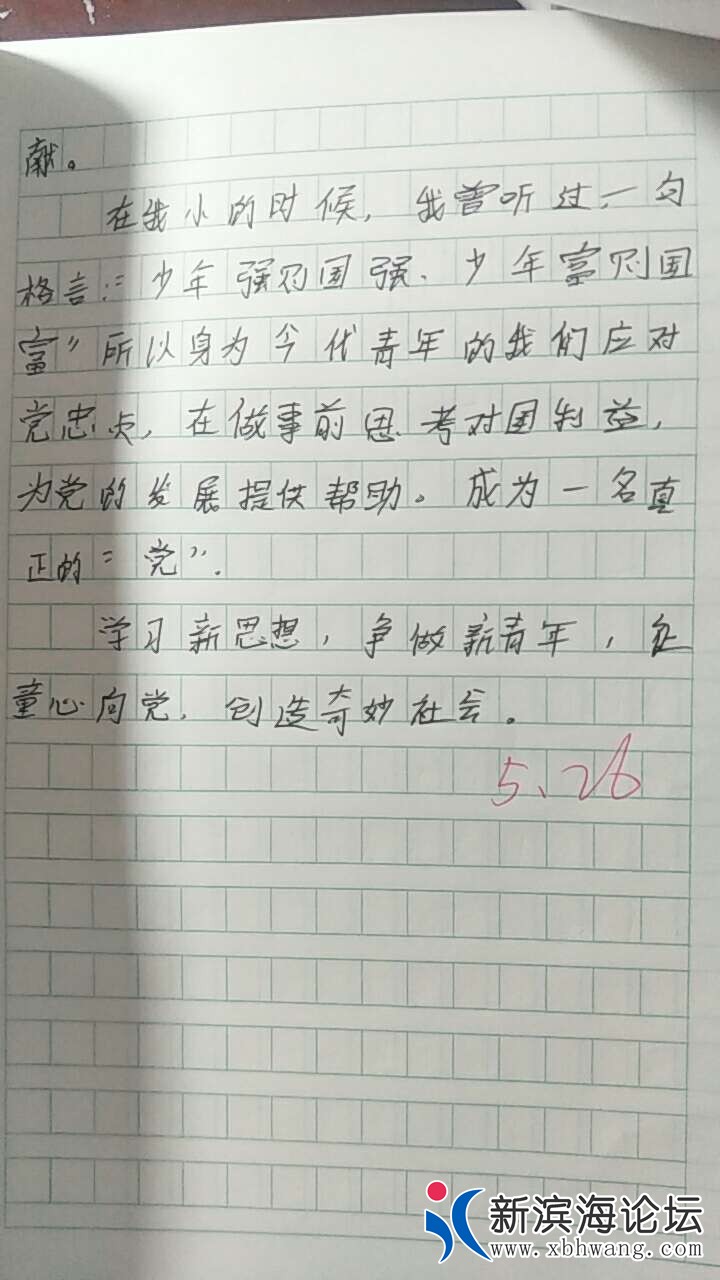 献。
在我小的时候，我曾听过一句
格言："少年强则国强、少年富则国
富"所以身为今代青年的我们应对
党忠贞，在做事前思考对国利益，
为党的发展提供帮助。成为一名真
正的"党"．
学习新思想，争做新青年，让
童心向党，创造奇妙社会。
5、26
新滨海论坛
www.xbhwang.com